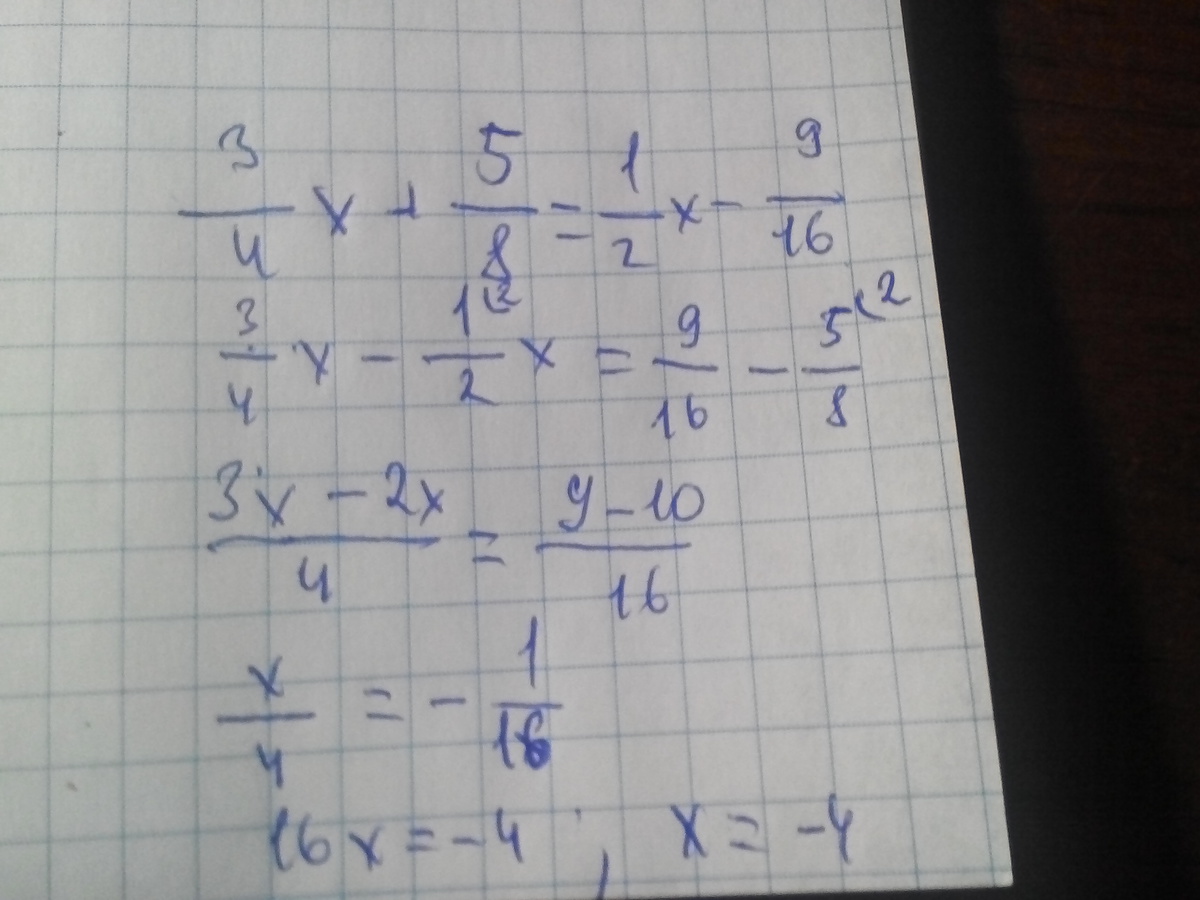 3/4 x + 5/8 = 1/2 x - 9/16
3/4 x - 1(2/2 x = 9/16 - 5(2/8
3x - 2x/4 = 9-10/16
x/4 = - 1/16
16x = -4 ; x = -4